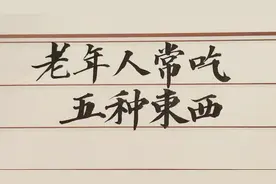 老年人常吃
五种東西